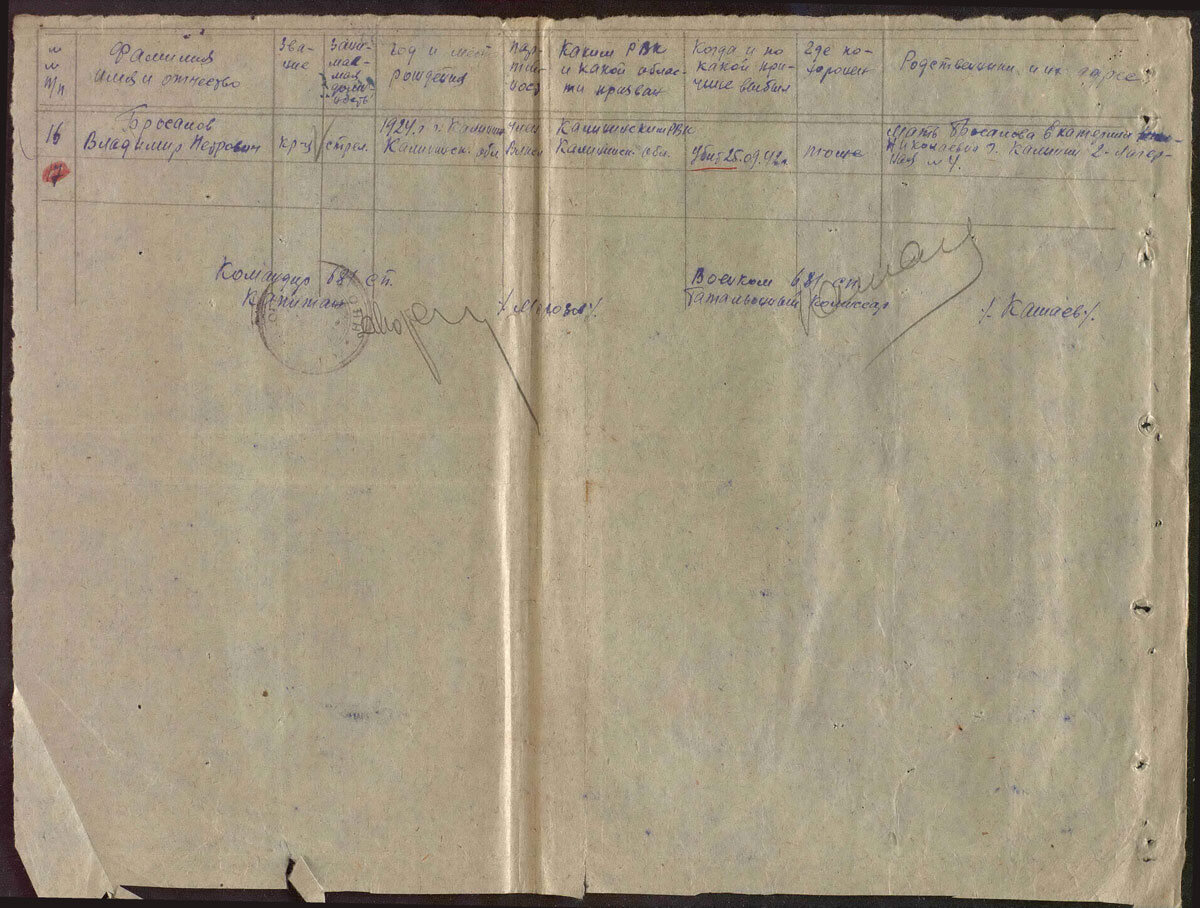 №№ п/п
Фамилия
имя и отчество
Зва-
ние
Зани-
мае-
мая
долж-
ность
Год и мест.
рождения
Пар-
тий-
ност.
Каким РВК
и какой облас-
ти призван
Когда и по
какой при-
чине выбыл
Где по-
хоронен
Родственники и их адрес
16
Бросалов
Владимир Петрович
кр-ц
стрел.
1924 г. г. Калинин
Калининск. обл
Член
Калининским РВК
Калининск. обл.
Убит 25.09.42г.
тоже
Мать Бросалова Екатерина
Николаевна г. Калинин 2-Лагер-
ная №4.
Командир 681 сп.
Капитан
Военком 681 сп
Батальонный комиссар
/. Катаев /.